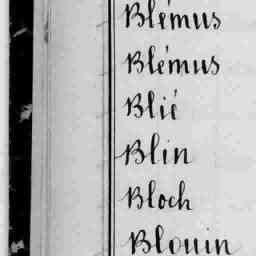 Blémus
Blémus
Blié
Blin
Bloch
Blouin